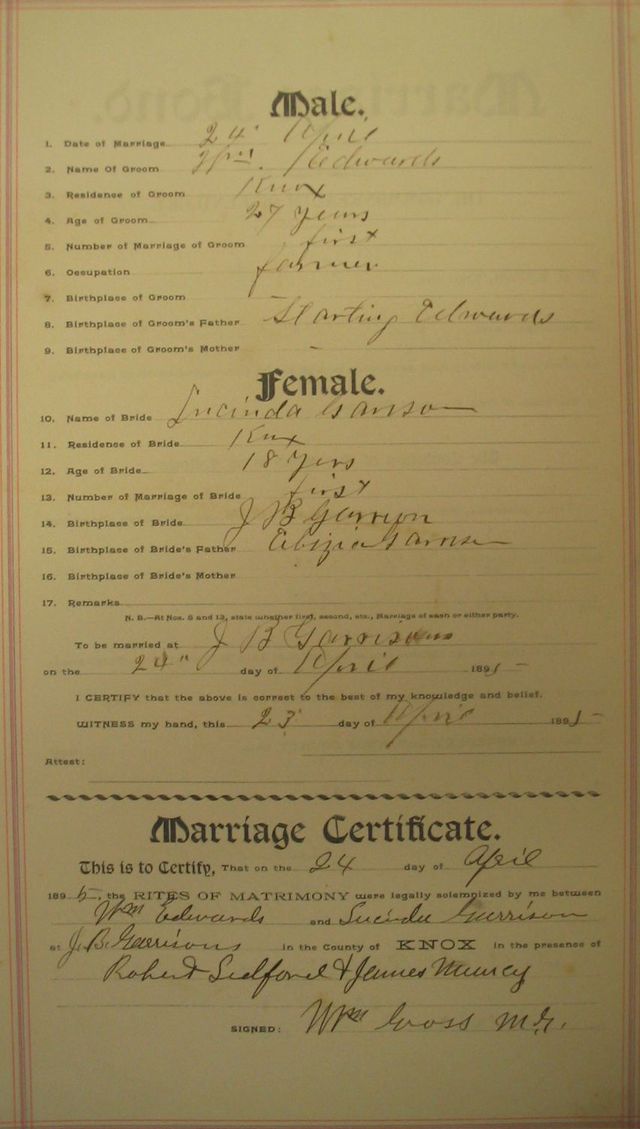 Male.
1. Date of Marriage 24" April
2. Name Of Groom Wm. Edwards
3. Residence of Groom Knox
4. Age of Groom 27 years
5. Number of Marriage of Groom first
6. Occupation farmer
7. Birthplace of Groom
8. Birthplace of Groom's Father Starting Edwards
9. Birthplace of Groom's Mother -
Female.
10. Name of Bride Lucinda Garrison
11. Residence of Bride Knox
12. Age of Bride 18 yers
13. Number of Marriage of Bride first
14. Birthplace of Bride J B Garrison
15. Birthplace of Bride's Father
16. Birthplace of Bride's Mother
17. Remarks
N. B.—At Nos. 5 and 13, state whether first, second, etc., Marriage of each or either party.
To be married at J B Garrisons
on the 24" day of April 1895
I CERTIFY that the above is correct to the best of my knowledge and belief.
WITNESS my hand, this 23 day of April 1895
Attest:
Marriage Certificate.
This is to Certify, That on the 24 day of April
1895, the RITES OF MATRIMONY were legally solemnized by me between
Wm Edwards and Lucinda Garrison
at J. B. Garrisons in the County of KNOX in the presence of
Robert Ledford & James Muncy
SIGNED: Wm Goss M.G.